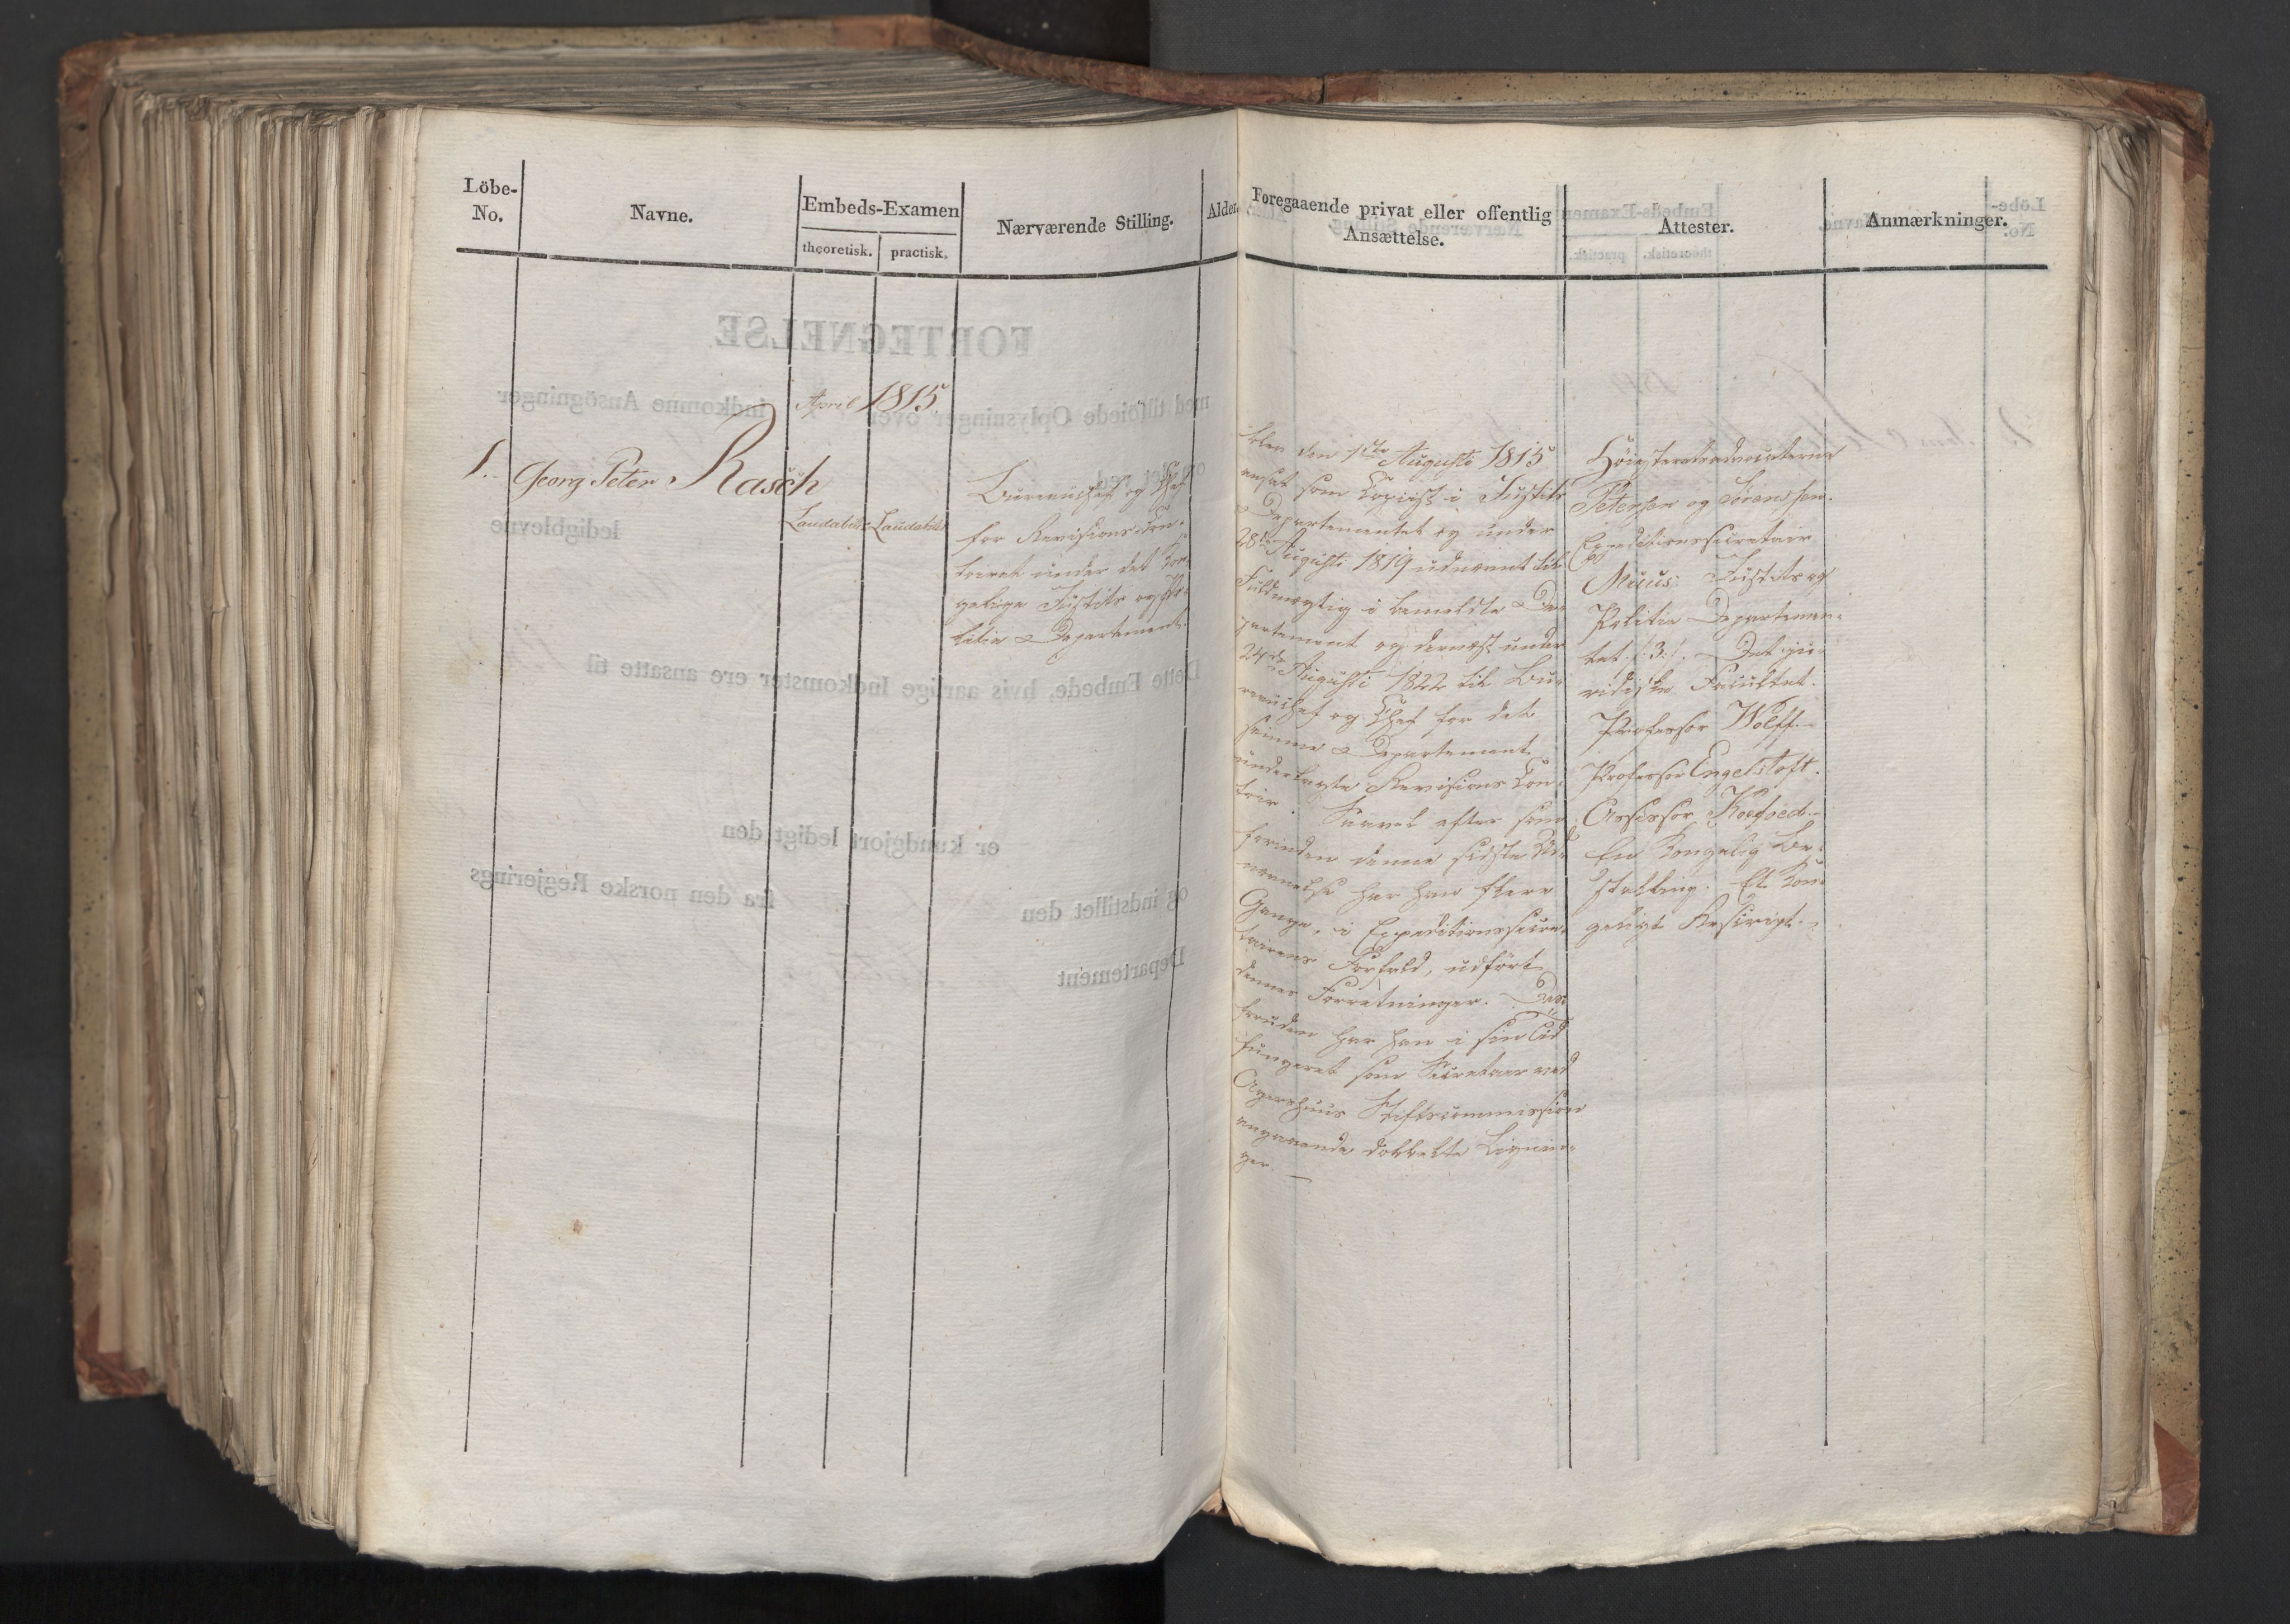 Löbe-
No.
Navne.
Embeds-Examen
theoretisk.
practisk.
Nærværende Stilling.
Alder.
Foregaaende privat eller offentlig
Ansættelse.
Attester.
Anmærkninger.
April 1815.
1.
Georg Peter Rasch
Laudabilis
Laudabilis
Bureauchef og Chef
for Revisions Con-
toiret under det Kon-
gelige Justits og Po-
litie Departement.
blev den 1ste Augusti 1815
ansat som Copiist i Justits
Departementet og under
28de Augusti 1819 udnævnt til
Fuldmægtig i bemeldte De-
partement og dernæst under
24de Augusti 1822 til Bu-
reauchef og Chef for det
samme Departement
underlagte Revisions Con-
toir. Saavel efter som
forinden denne sidste Ud-
nævnelse har han flere
Gange, i Expeditionssecre-
tairens Forfald, udført
dennes Forretninger. Des-
foruden har han i sin Tid
fungeret som Secretair ved
Agershuus Stiftscommission
angaaende dobbelte Lignin-
ger. —
Höiesteretsadvocaterne
Petersen og Sörenssen.
Expeditionssecretair
Muus. Justits og
Politie Departemen-
tet /: 3 :/. Det ju-
ridiske Facultet.
Professor Wolff.
Professor Engelstoft.
Assessor Koefoed.
En Kongelig Be-
stalling. Et Kon-
geligt Rescript.